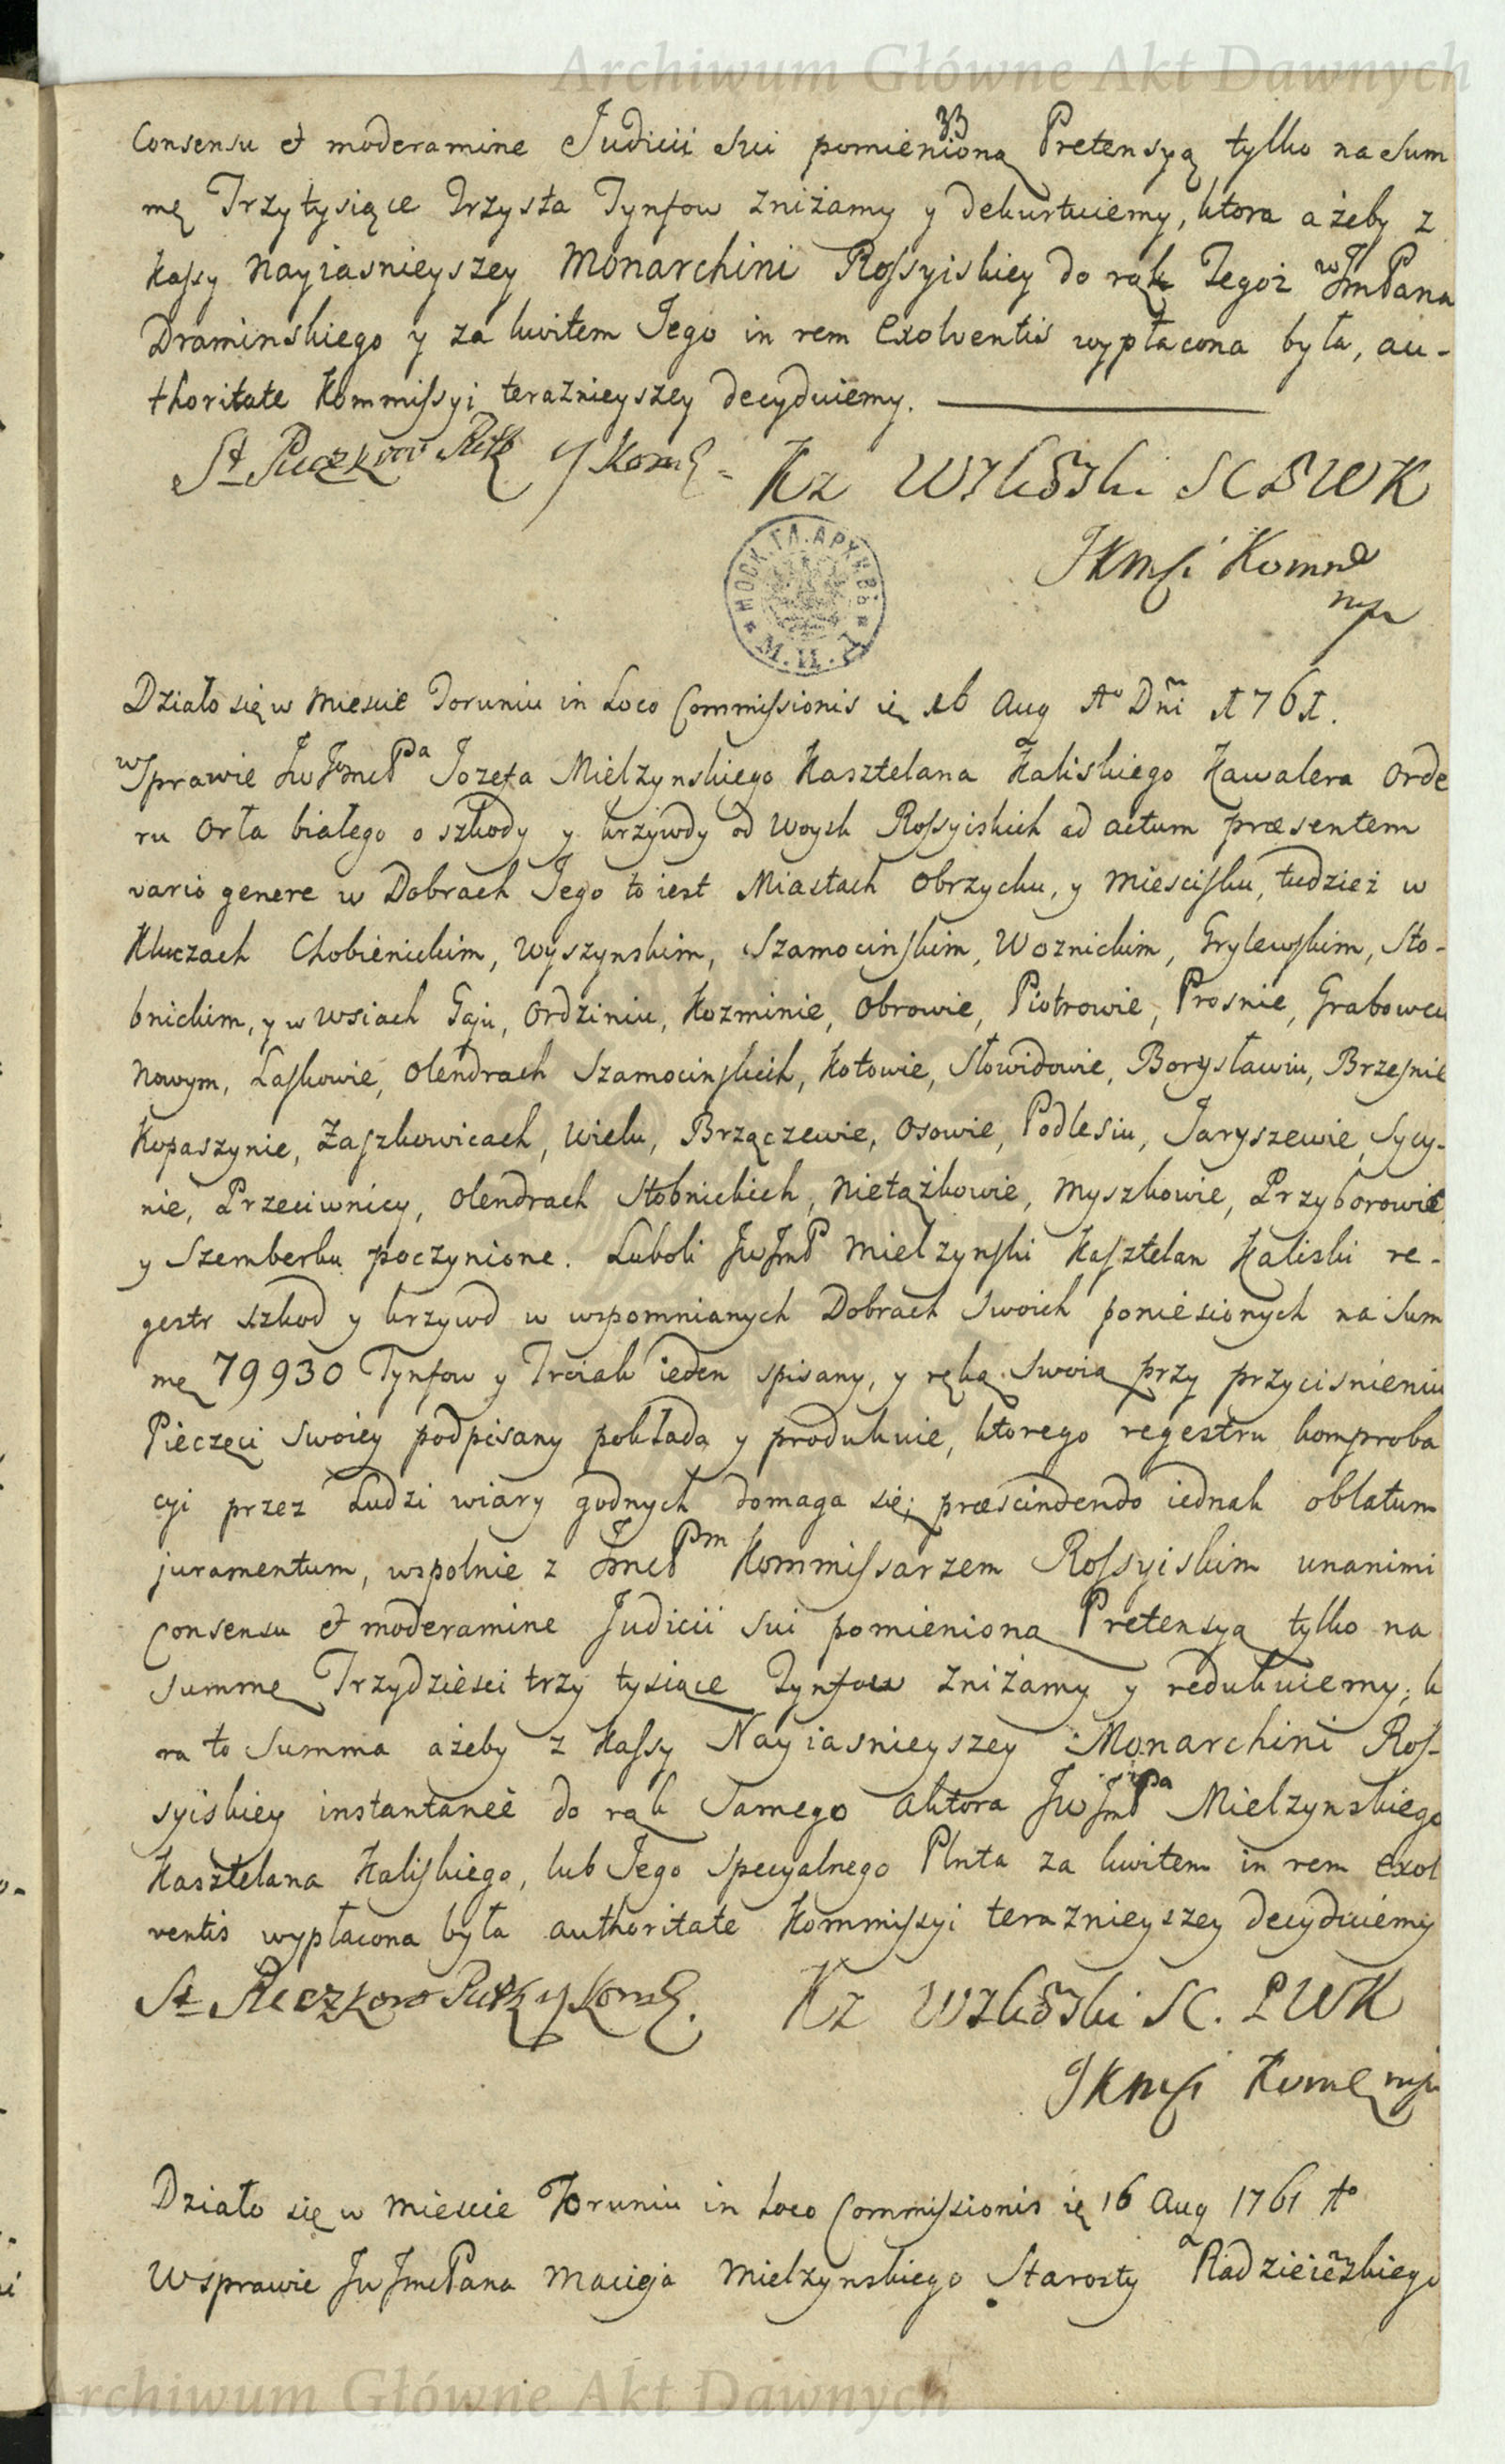 Archiwum Główne Akt Dawnych
33
Consensu et moderamine Judicii sui pomienioną Pretensyą tylko na Sum
mę Trzy tysiące Trzysta Tynfow zniżamy y dekurtuiemy, ktora ażeby z
Kassy Nayiasnieyszey Monarchini Rossyiskiey do rąk Tegoż WJmPana
Draminskiego y za kwitem Jego in rem Exolventis wypłacona była, au-
thoritate Kommissyi terazniejszey decyduiemy.
St y Kom
Kz SC WK
JKMsi Komm
mp
МОСК. ГЛ. АРХИВЪ
М.И.Д
Działo się w Miescie Toruniu in Loco Commissionis ię 16 Aug Ao Dni 1761.
W Sprawie JwJmcPa Jozefa Mielzynskiego Kasztelana Kaliskiego Kawalera Orde
ru Orła białego o szkody y krzywdy od Woysk Rossyiskich ad actum præsentem
vario genere w Dobrach Jego to iest Miastach Obrzycku, y Miescisku, tudzież w
Kluczach Chobienickim, Wyszynskim, Szamocinskim, Woznickim, Grylewskim, Sto-
bnickim, y w Wsiach Gaju, Ordziniu, Kozminie, Obrowie, Piotrowie, Prosnie, Grabowcu
Nowym, Laskowie, Olendrach Szamocinskich, Kotowie, Słowidowie, Borysławiu, Brzesnie
Kopaszynie, Zaszkowicach, Wielu, Brzączewie, Osowie, Podlesiu, Jaryszewie, Sycy-
nie, Przeciwnicy, Olendrach Stobnickich, Nietążkowie, Myszkowie, Przyborowie
y Szemberku poczynione. Luboli JwJmP Mielzynski Kasztelan Kaliski re-
gestr szkod y krzywd w wspomnianych Dobrach swoich poniesionych na Sum
mę 79930 Tynfow y Trciak ieden spisany, y ręką swoią przy przycisnieniu
Pieczęci swoiey podpisany pokłada y produkuie, ktorego regestru komproba
cyi przez Ludzi wiary godnych domaga się; præscindendo iednak oblatum
juramentum, wspolnie z JmcPm Kommissarzem Rossyiskim unanimi
Consensu et moderamine Judicii sui pomienioną Pretensyą tylko na
summę Trzydziesci trzy tysiące Tynfow zniżamy y redukuiemy; k
ra to Summa ażeby z Kassy Nayiasnieyszey Monarchini Ros-
syiskiey instantanee do rąk Samego Aktora JwJmPa Mielzynskiego
Kasztelana Kaliskiego, lub Jego specyalnego Plnta za kwitem in rem Exol
ventis wypłacona była authoritate Kommissyi teraznieyszey decyduiemy
St y Kom
Kz SC. PWK
JKMsi Kom mp
Działo się w Miescie Toruniu in Loco Commissionis ię 16 Aug 1761 Ao
W sprawie JwJmcPana Macieja Mielzynskiego Starosty Radzieiewskiego
Archiwum Główne Akt Dawnych